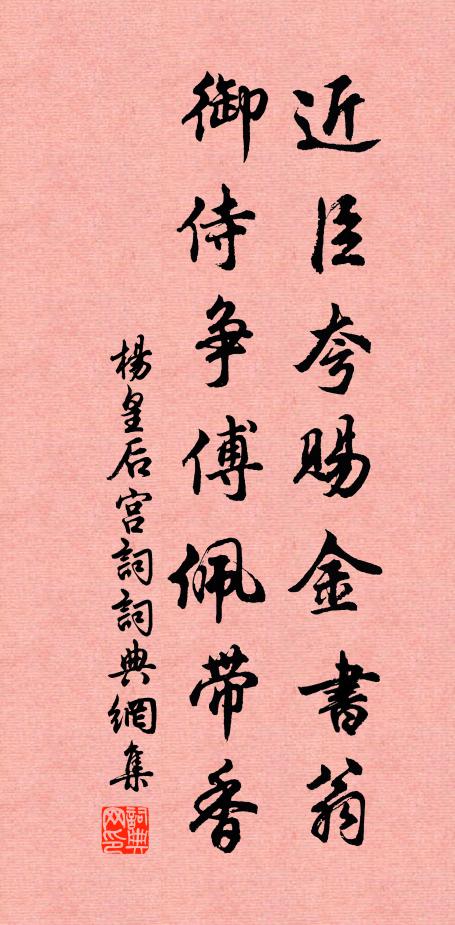 近臣夸賜金書翁
御侍争傅佩帶香
楊皇后宫詞詞典網集
詞典网印